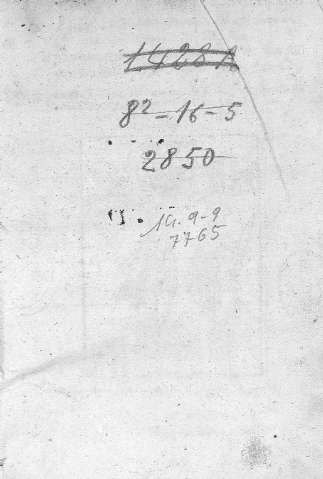 1428A
8² - 16 - 5
2850
19. 9-9
7765